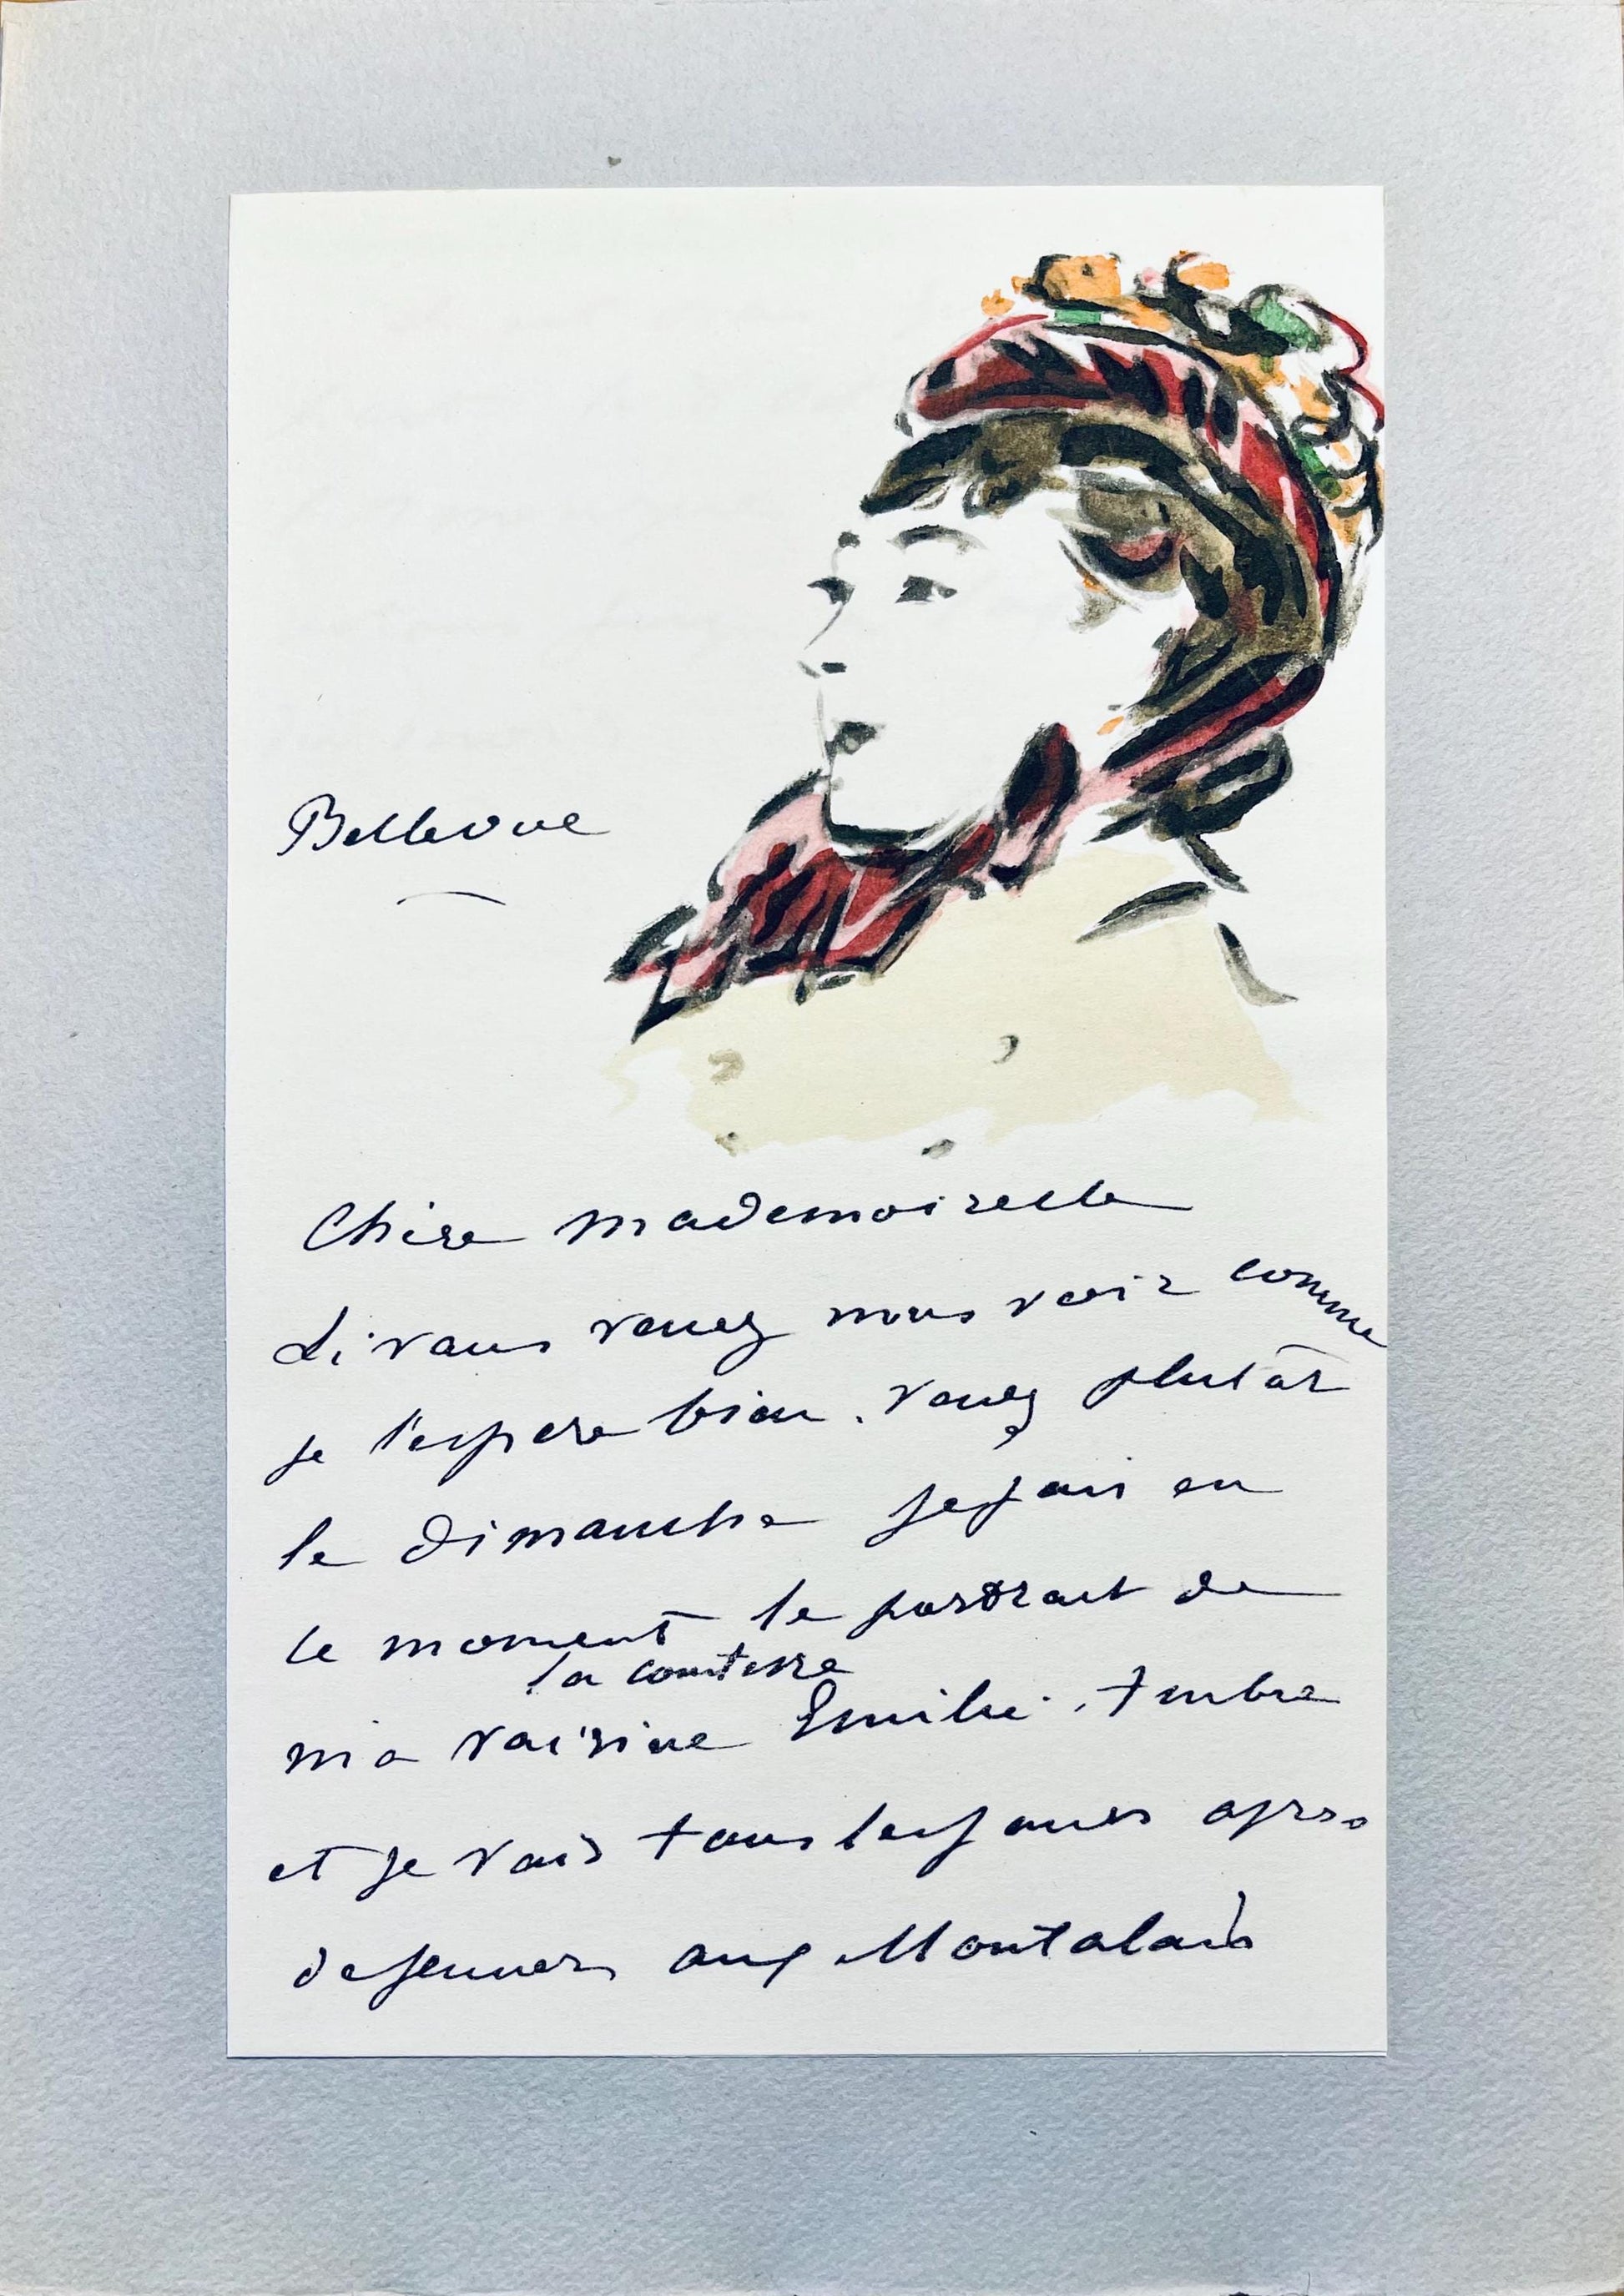 Bellevue
Chère Mademoiselle
Si vous venez nous voir comme
je l'espere bien. venez plutôt
le dimanche je fais en
ce moment le portrait de
la comtesse
ma voisine Emilie Ambre
et je vais tous les jours apres
dejeuner aux Montalais